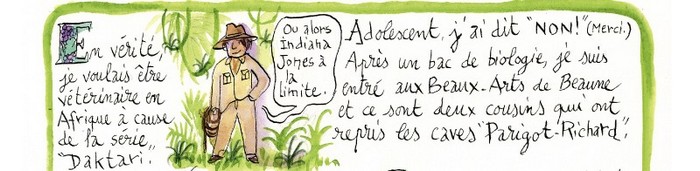 En vérité,
je voulais être
vétérinaire en
Afrique à cause
de la série
"Daktari.
Ou alors
Indiana
Jones à
la
limite.
Adolescent, j'ai dit "NON!" (Merci.)
Après un bac de biologie, je suis
entré aux Beaux-Arts de Beaune
et ce sont deux cousins qui ont
repris les caves "Parigot-Richard".